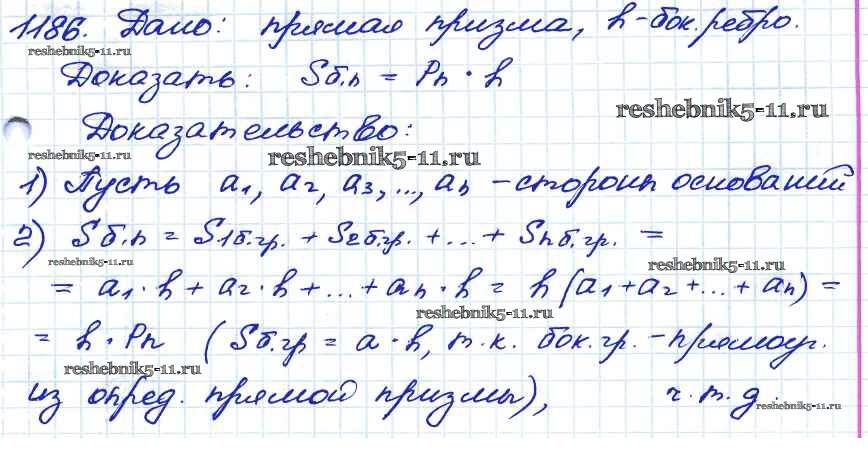 1186. Дано: прямая призма, h-бок.ребро.
reshebnik5-11.ru
Доказать: Sб.п = Pп · h
reshebnik5-11.ru
Доказательство:
reshebnik5-11.ru reshebnik5-11.ru
1) Пусть a1, a2, a3, ..., an - стороны оснований
2) Sб.п = S1б.гр. + S2б.гр. + ... + Snб.гр. =
reshebnik5-11.ru reshebnik5-11.ru
= a1·h + a2·h + ... + an·h = h(a1+a2+...+an) =
reshebnik5-11.ru
= h·Pп (Sб.гр = a·h, т.к. бок.гр. - прямоуг.
reshebnik5-11.ru
из опред. прямой призмы), ч.т.д.
reshebnik5-11.ru